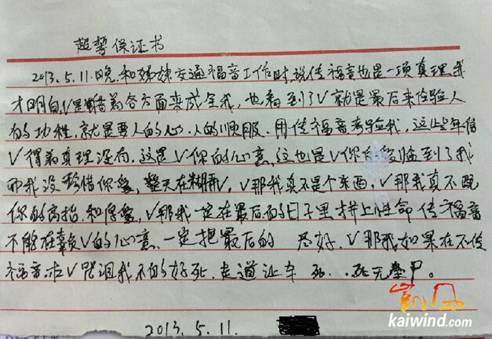 起誓保证书
2013.5.11.晚.和姊妹交通福音工作时.说传福音也是一项真理.我
才明白.V是借着各方面来成全我,也看到了V就是最后来检验人
的功性.就是要人的心.人的顺服.用传福音考验我.这些年信
V得着真理没有.这是V你的心意.这也是V你 临到了我
而我没珍惜你爱.整天在糊弄.V那我真不是个东西.V那我真不配
你的高抬.和 爱.V那我一定在最后的日子里拼上性命传福音
不能在辜负V的心意.一定把最后的 尽好.V那我如果在不传
福音求V咒诅我不的好死.走道让车 死 死无葬
2013.5.11.
kaiwind.com